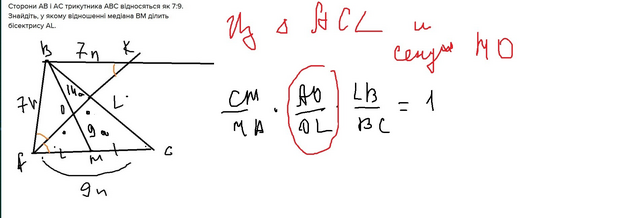 Сторони AB і AC трикутника ABC відносяться як 7:9.
Знайдіть, у якому відношенні медіана BM ділить
бісектрису AL.
Из Δ ACL и
MO
B 7n K
7n
14a
O
L
9a
A M C
9n
CM/MA · AO/OL · LB/BC = 1